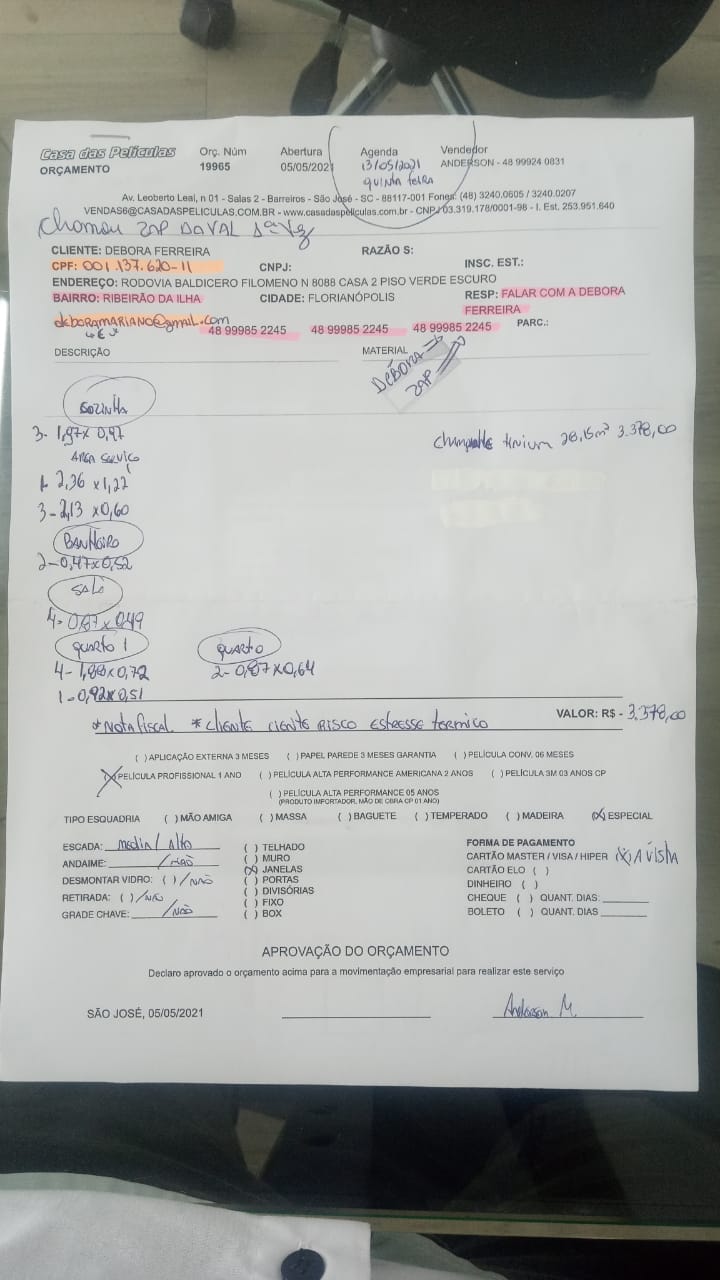 Casa das Películas
ORÇAMENTO
Orç. Núm
19965
Abertura
05/05/2021
Agenda
13/05/2021
QUINTA FEIRA
Vendedor
ANDERSON - 48 99924 0831
Av. Leoberto Leal, n 01 - Salas 2 - Barreiros - São José - SC - 88117-001 Fones: (48) 3240.0605 / 3240.0207
VENDAS6@CASADASPELICULAS.COM.BR - www.casadaspeliculas.com.br - CNPJ 03.319.178/0001-98 - I. Est. 253.951.640
Chamou ZAP DAVAL 1ª Vez
CLIENTE: DEBORA FERREIRA
RAZÃO S:
CPF: 001.137.620-11
CNPJ:
INSC. EST.:
ENDEREÇO: RODOVIA BALDICERO FILOMENO N 8088 CASA 2 PISO VERDE ESCURO
BAIRRO: RIBEIRÃO DA ILHA
CIDADE: FLORIANÓPOLIS
RESP: FALAR COM A DEBORA FERREIRA
deboramariano@gmail.com
48 99985 2245 48 99985 2245 48 99985 2245
PARC.:
DESCRIÇÃO
MATERIAL
DÉBORA
ZAP
COZINHA
3- 1,97 x 0,97
AREA SERVIÇO
1- 2,36 x 1,22
3- 2,13 x 0,60
BANHEIRO
2- 0,47 x 0,52
SALA
4- 0,87 x 0,49
QUARTO 1
4- 1,88 x 0,72
1- 0,92 x 0,51
QUARTO
2- 0,87 x 0,64
champanhe tinium 28,15m² 3.378,00
*NOTA FISCAL *CLIENTE CIENTE RISCO ESTRESSE TERMICO
VALOR: R$ - 3.378,00
( ) APLICAÇÃO EXTERNA 3 MESES ( ) PAPEL PAREDE 3 MESES GARANTIA ( ) PELÍCULA CONV. 06 MESES
(X) PELÍCULA PROFISSIONAL 1 ANO ( ) PELÍCULA ALTA PERFORMANCE AMERICANA 2 ANOS ( ) PELÍCULA 3M 03 ANOS CP
( ) PELÍCULA ALTA PERFORMANCE 05 ANOS
(PRODUTO IMPORTADOR, MÃO DE OBRA CP 01 ANO)
TIPO ESQUADRIA ( ) MÃO AMIGA ( ) MASSA ( ) BAGUETE ( ) TEMPERADO ( ) MADEIRA (X) ESPECIAL
ESCADA: media / Alto
ANDAIME: /NÃO
DESMONTAR VIDRO: ( ) /NÃO
RETIRADA: ( ) /NÃO
GRADE CHAVE: /NÃO
( ) TELHADO
( ) MURO
(X) JANELAS
( ) PORTAS
( ) DIVISÓRIAS
( ) FIXO
( ) BOX
FORMA DE PAGAMENTO
CARTÃO MASTER / VISA / HIPER (X) A VISTA
CARTÃO ELO ( )
DINHEIRO ( )
CHEQUE ( ) QUANT. DIAS:
BOLETO ( ) QUANT. DIAS
APROVAÇÃO DO ORÇAMENTO
Declaro aprovado o orçamento acima para a movimentação empresarial para realizar este serviço
SÃO JOSÉ, 05/05/2021
Anderson M.